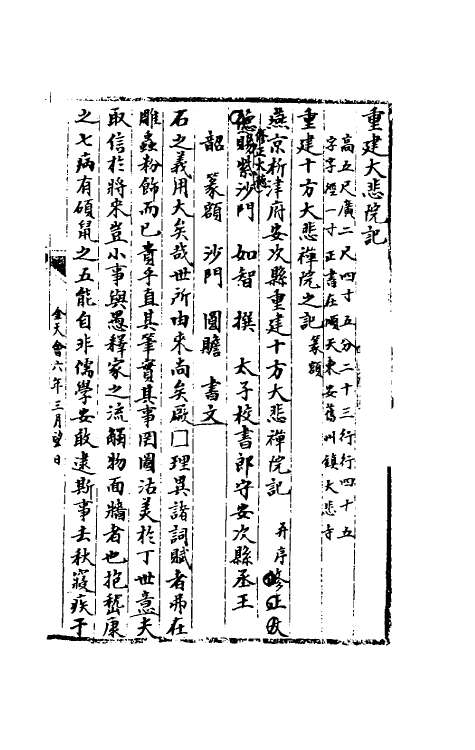 重建大悲院記
高五尺廣二尺四寸五分二十三行行四十五
字字徑一寸正書在順天東安舊州鎮大悲寺
重建十方大悲禪院之記篆額
燕京析津府安次縣重建十方大悲禪院記 并序
德賜紫沙門 如智 撰 太子校書郎守安次縣丞王
韶 篆額 沙門 圓瞻 書文
石之義用大矣哉世所由來尚矣厥囗理異諸詞賦者弗在
雕蟲粉飾而已貴乎直其筆實其事因圖沽美於丁世意夫
取信於將來豈小事與愚釋家之流觸物面牆者也抱嵇康
之七病有碩鼠之五能自非儒學安敢逮斯事去秋寢疾于
金天會六年三月望日